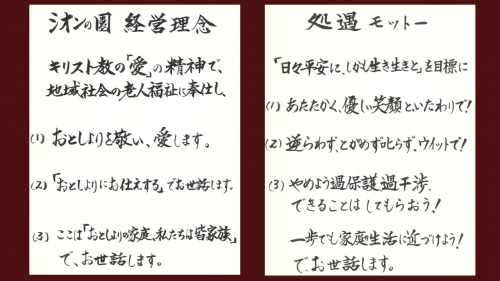 シオンの園 経営理念
キリスト教の「愛」の精神で、
地域社会の老人福祉に奉仕し、
(1) おとしよりを敬い、愛します。
(2) 「おとしよりにお仕えする」でお世話します。
(3) ここは「おとしよりの家庭、私たちは皆家族」
で、お世話します。
処遇モットー
「日々平安に、しかも生き生きと」を目標に
(1) あたたかく、優しい笑顔といたわりで!
(2) 逆らわず、とがめず叱らず、ウイットで!
(3) やめよう過保護過干渉、
できることはしてもらおう!
一歩でも家庭生活に近づけよう!
で、お世話します。